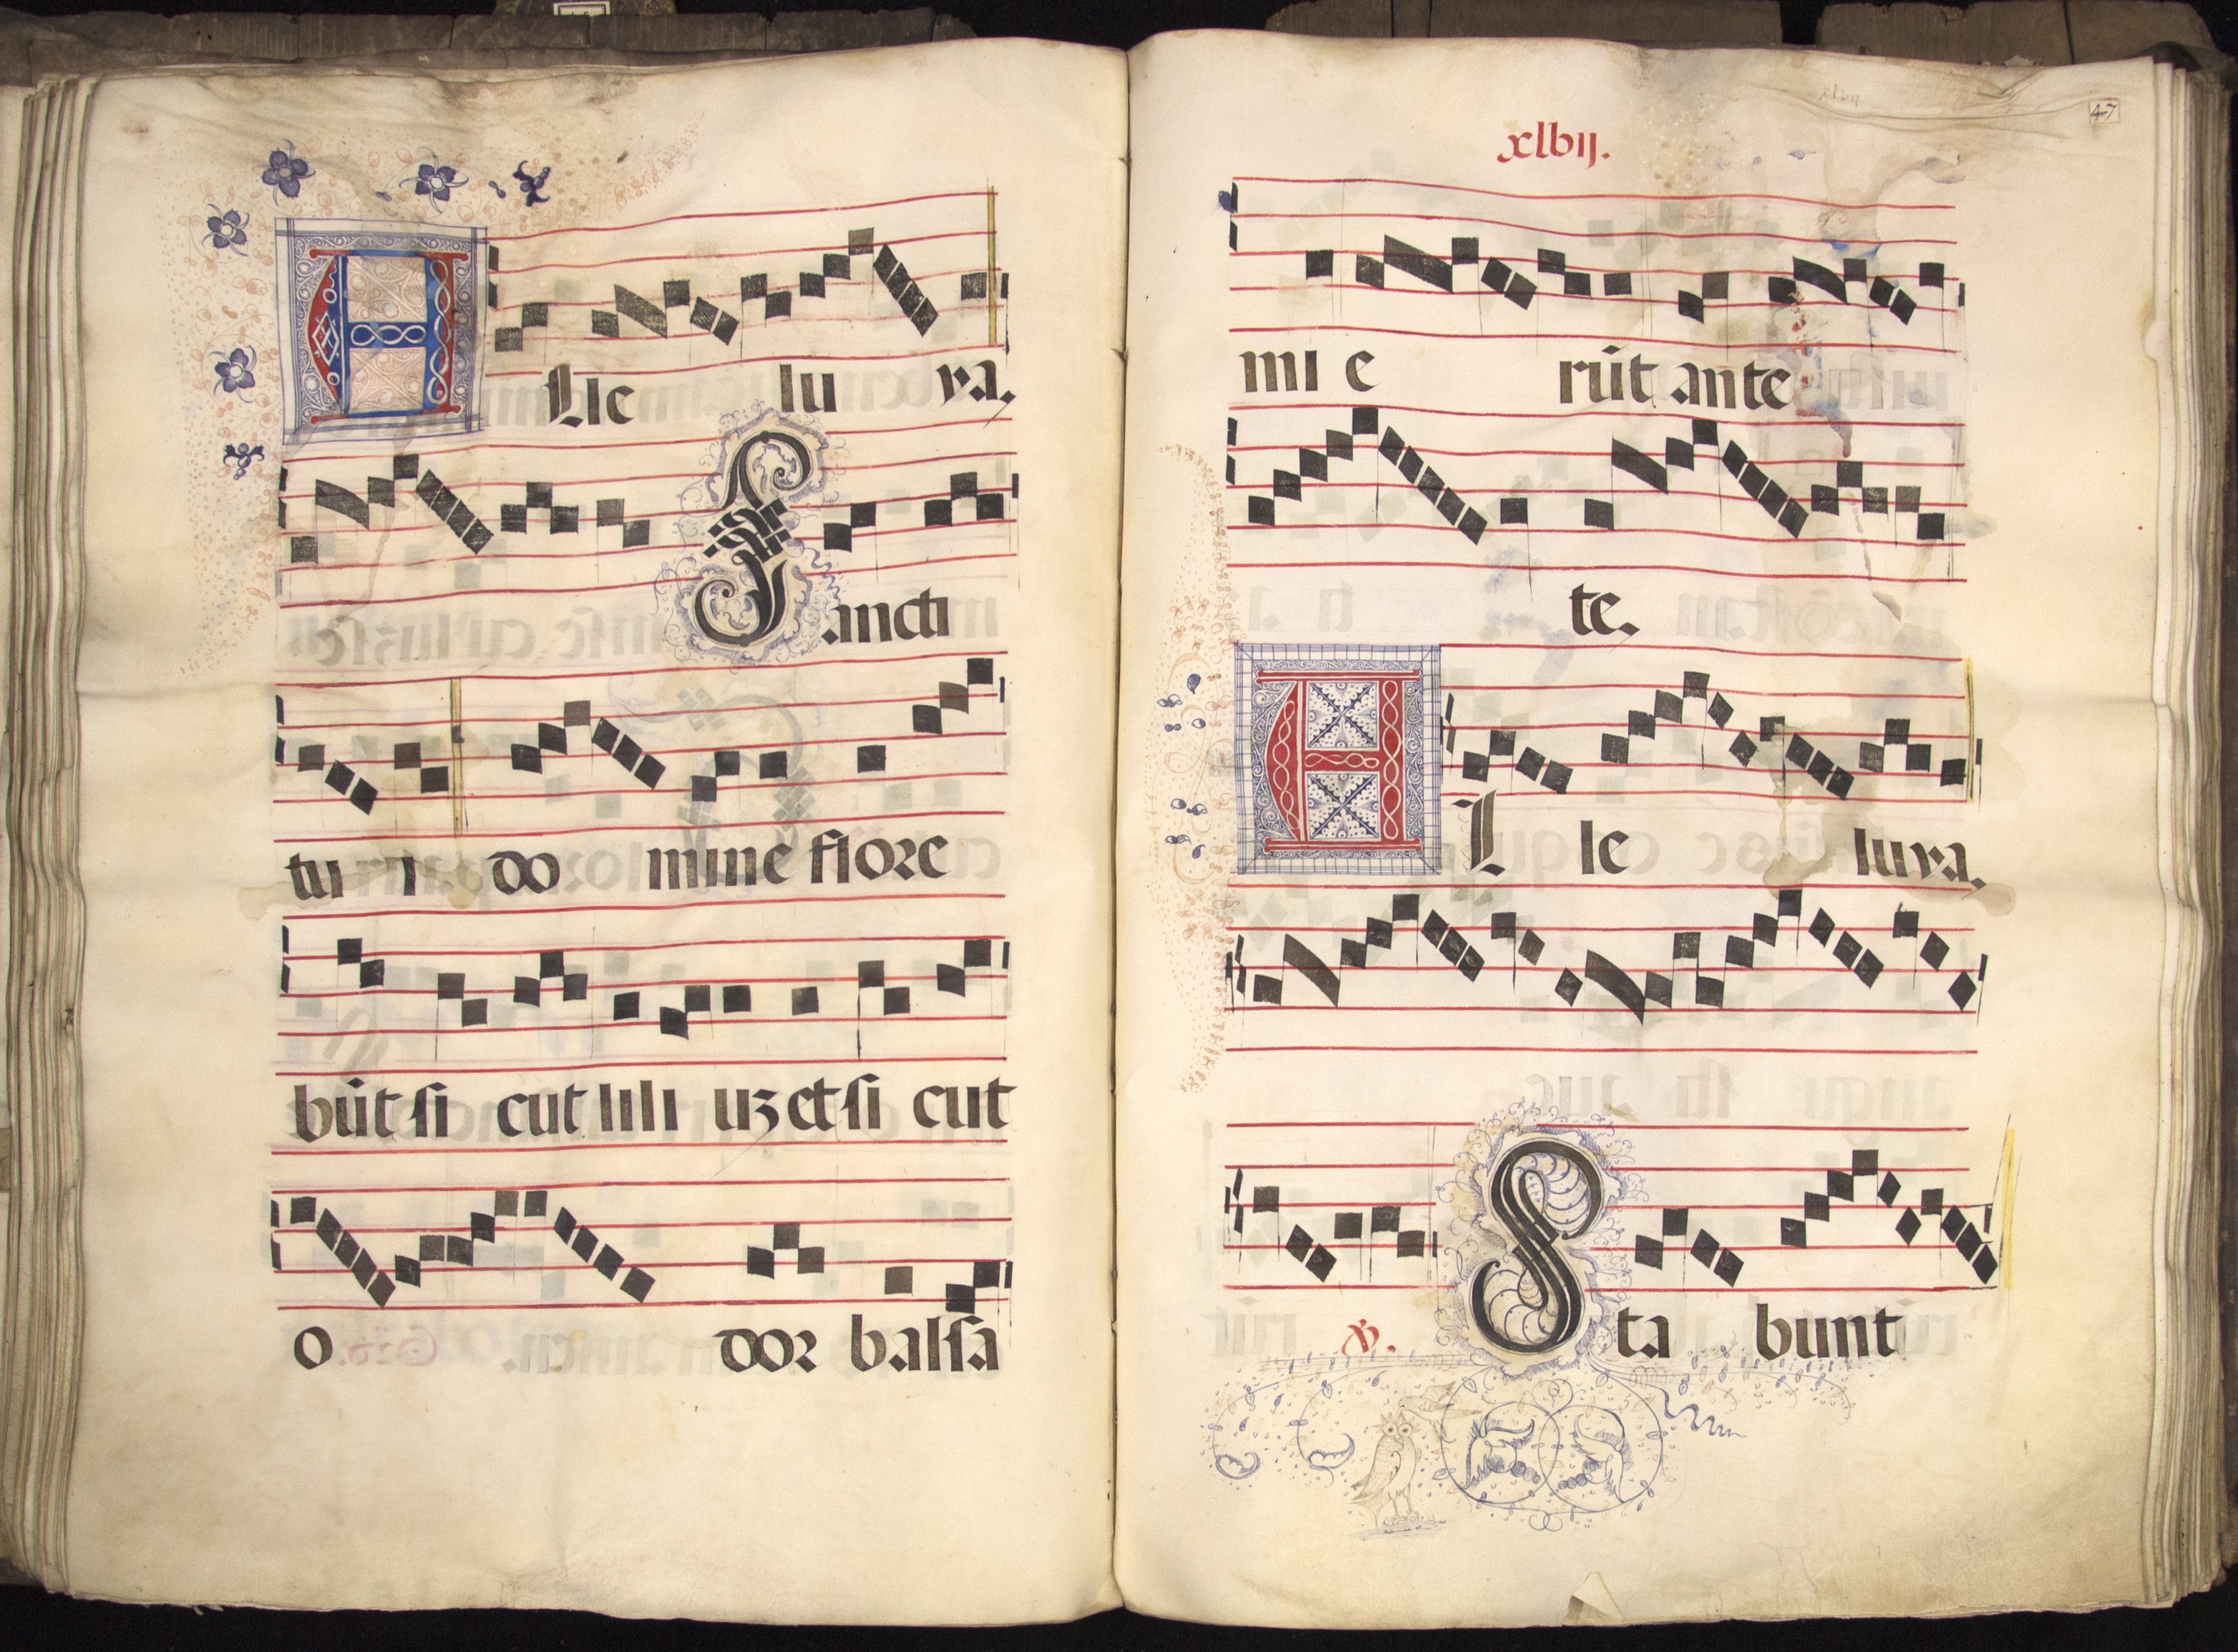 ALle lu ya.
Sancti
tu i do mine flore
būt si cut lili uꝫ et si cut
o dor balsa
xlvij
47
xlvij.
mi e rūt ante
te.
AL le luya.
℣. Sta bunt